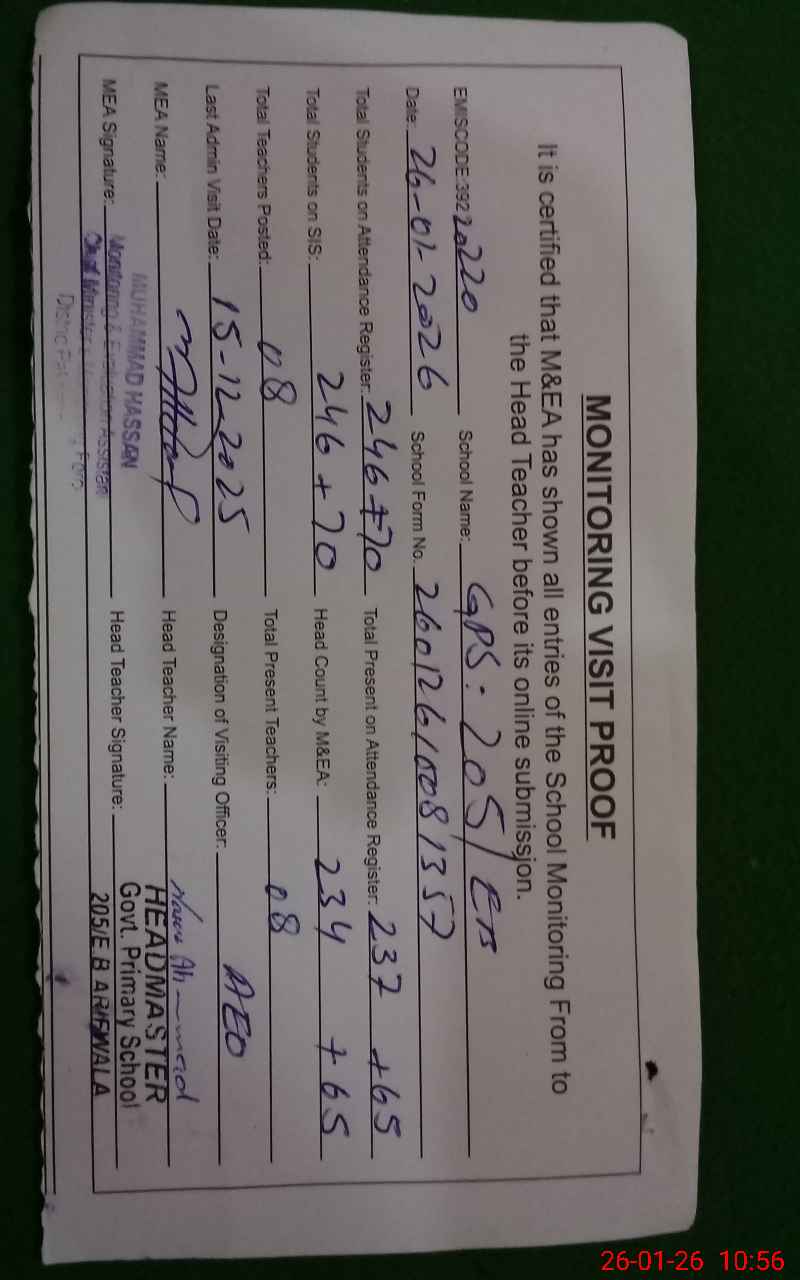 MONITORING VISIT PROOF
It is certified that M&EA has shown all entries of the School Monitoring From to
the Head Teacher before its online submission.
EMISCODE:39220220 School Name: GPS: 205/EB
Date: 26-01-2026 School Form No. 26012610081357
Total Students on Attendance Register: 246+70 Total Present on Attendance Register: 237 +65
Total Students on SIS: 246+70 Head Count by M&EA: 234 +65
Total Teachers Posted: 08 Total Present Teachers: 08
Last Admin Visit Date: 15-12-2025 Designation of Visiting Officer: AEO
MEA Name: Head Teacher Name:
MEA Signature: Head Teacher Signature:
MUHAMMAD HASSAN
Monitoring & Evaluation Assistan
Chief Minister's Monitoring Force
District Pak
HEADMASTER
Govt. Primary School
205/E.B ARIFWALA
26-01-26 10:56